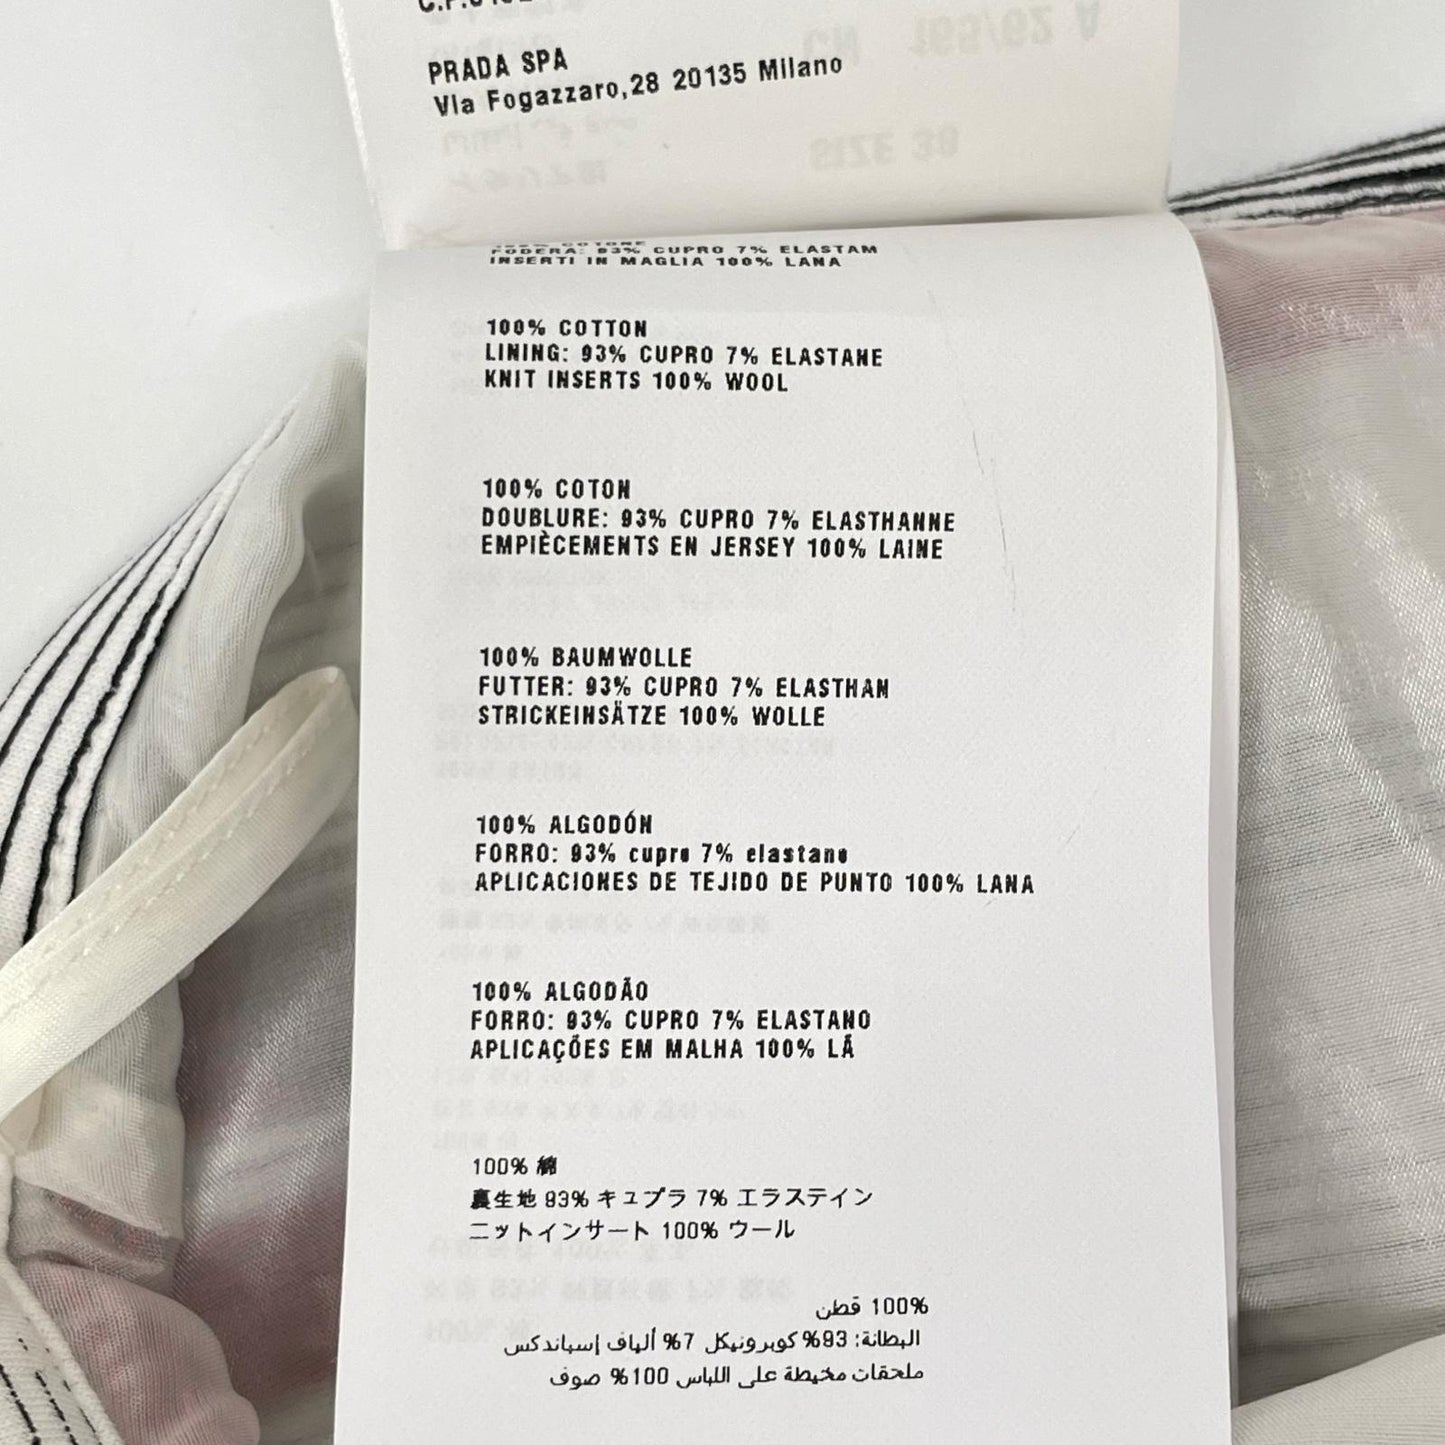 PRADA SPA
Via Fogazzaro,28 20135 Milano
FODERA: 93% CUPRO 7% ELASTAM
INSERTI IN MAGLIA 100% LANA
100% COTTON
LINING: 93% CUPRO 7% ELASTANE
KNIT INSERTS 100% WOOL
100% COTON
DOUBLURE: 93% CUPRO 7% ELASTHANNE
EMPIÈCEMENTS EN JERSEY 100% LAINE
100% BAUMWOLLE
FUTTER: 93% CUPRO 7% ELASTHAN
STRICKEINSÄTZE 100% WOLLE
100% ALGODÓN
FORRO: 93% cupro 7% elastano
APLICACIONES DE TEJIDO DE PUNTO 100% LANA
100% ALGODÃO
FORRO: 93% CUPRO 7% ELASTANO
APLICAÇÕES EM MALHA 100% LÃ
100% 綿
裏生地 93% キュプラ 7% エラステイン
ニットインサート 100% ウール
100% قطن
البطانة: 93% كوبرونيكل 7% ألياف إسباندكس
ملحقات مخيطة على اللباس 100% صوف